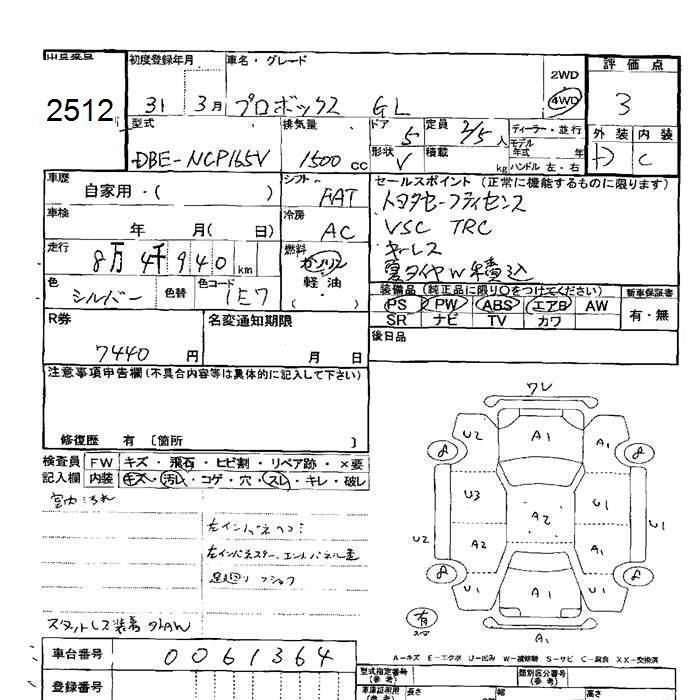 初度登録年月 車名・グレード 評価点
2512 31 3月 プロボックス GL 2WD 4WD 3
型式 排気量 ドア 5 定員 2/5人 ディーラー・並行 外装 内装
DBE-NCP165V 1500cc 形状 V 積載 kg モデル年式 年 ハンドル 左・右 D C
車歴 自家用・( ) シフト FAT セールスポイント (正常に機能するものに限ります)
トヨタセーフティセンス
車検 年 月( 日) 冷房 AC VSC TRC
走行 8万4千940km 燃料 ガソリン キーレス
軽油 夏タイヤW 積込
色 シルバー 色替 色コード 1E7 ・( )
装備品 (純正品に限り○をつけてください) 新車保証書
PS PW ABS エアB AW 有・無
SR ナビ TV カワ
R券 名変通知期限 後日品
7440円 月 日
注意事項申告欄(不具合内容等は具体的に記入して下さい)
修復歴 有 〔箇所 〕
検査員 FW キズ・飛石・ヒビ割・リペア跡・×要
記入欄 内装 キズ・汚レ・コゲ・穴・スレ・キレ・破レ
室内汚れ
左インパネヘコミ
スタットレス装着
ワレ
U2 A1 A1
8 8
U3 A2 U1 U1
U2 A2 A1
8 8
U1 A1 U1
有
A1
A-キズ E-エクボ U-凹み W-補修跡 S-サビ C-腐食 XX-交換済
車台番号 0061364
型式指定番号(参考) 類別区分番号(参考)
登録番号 長さ 幅 高さ